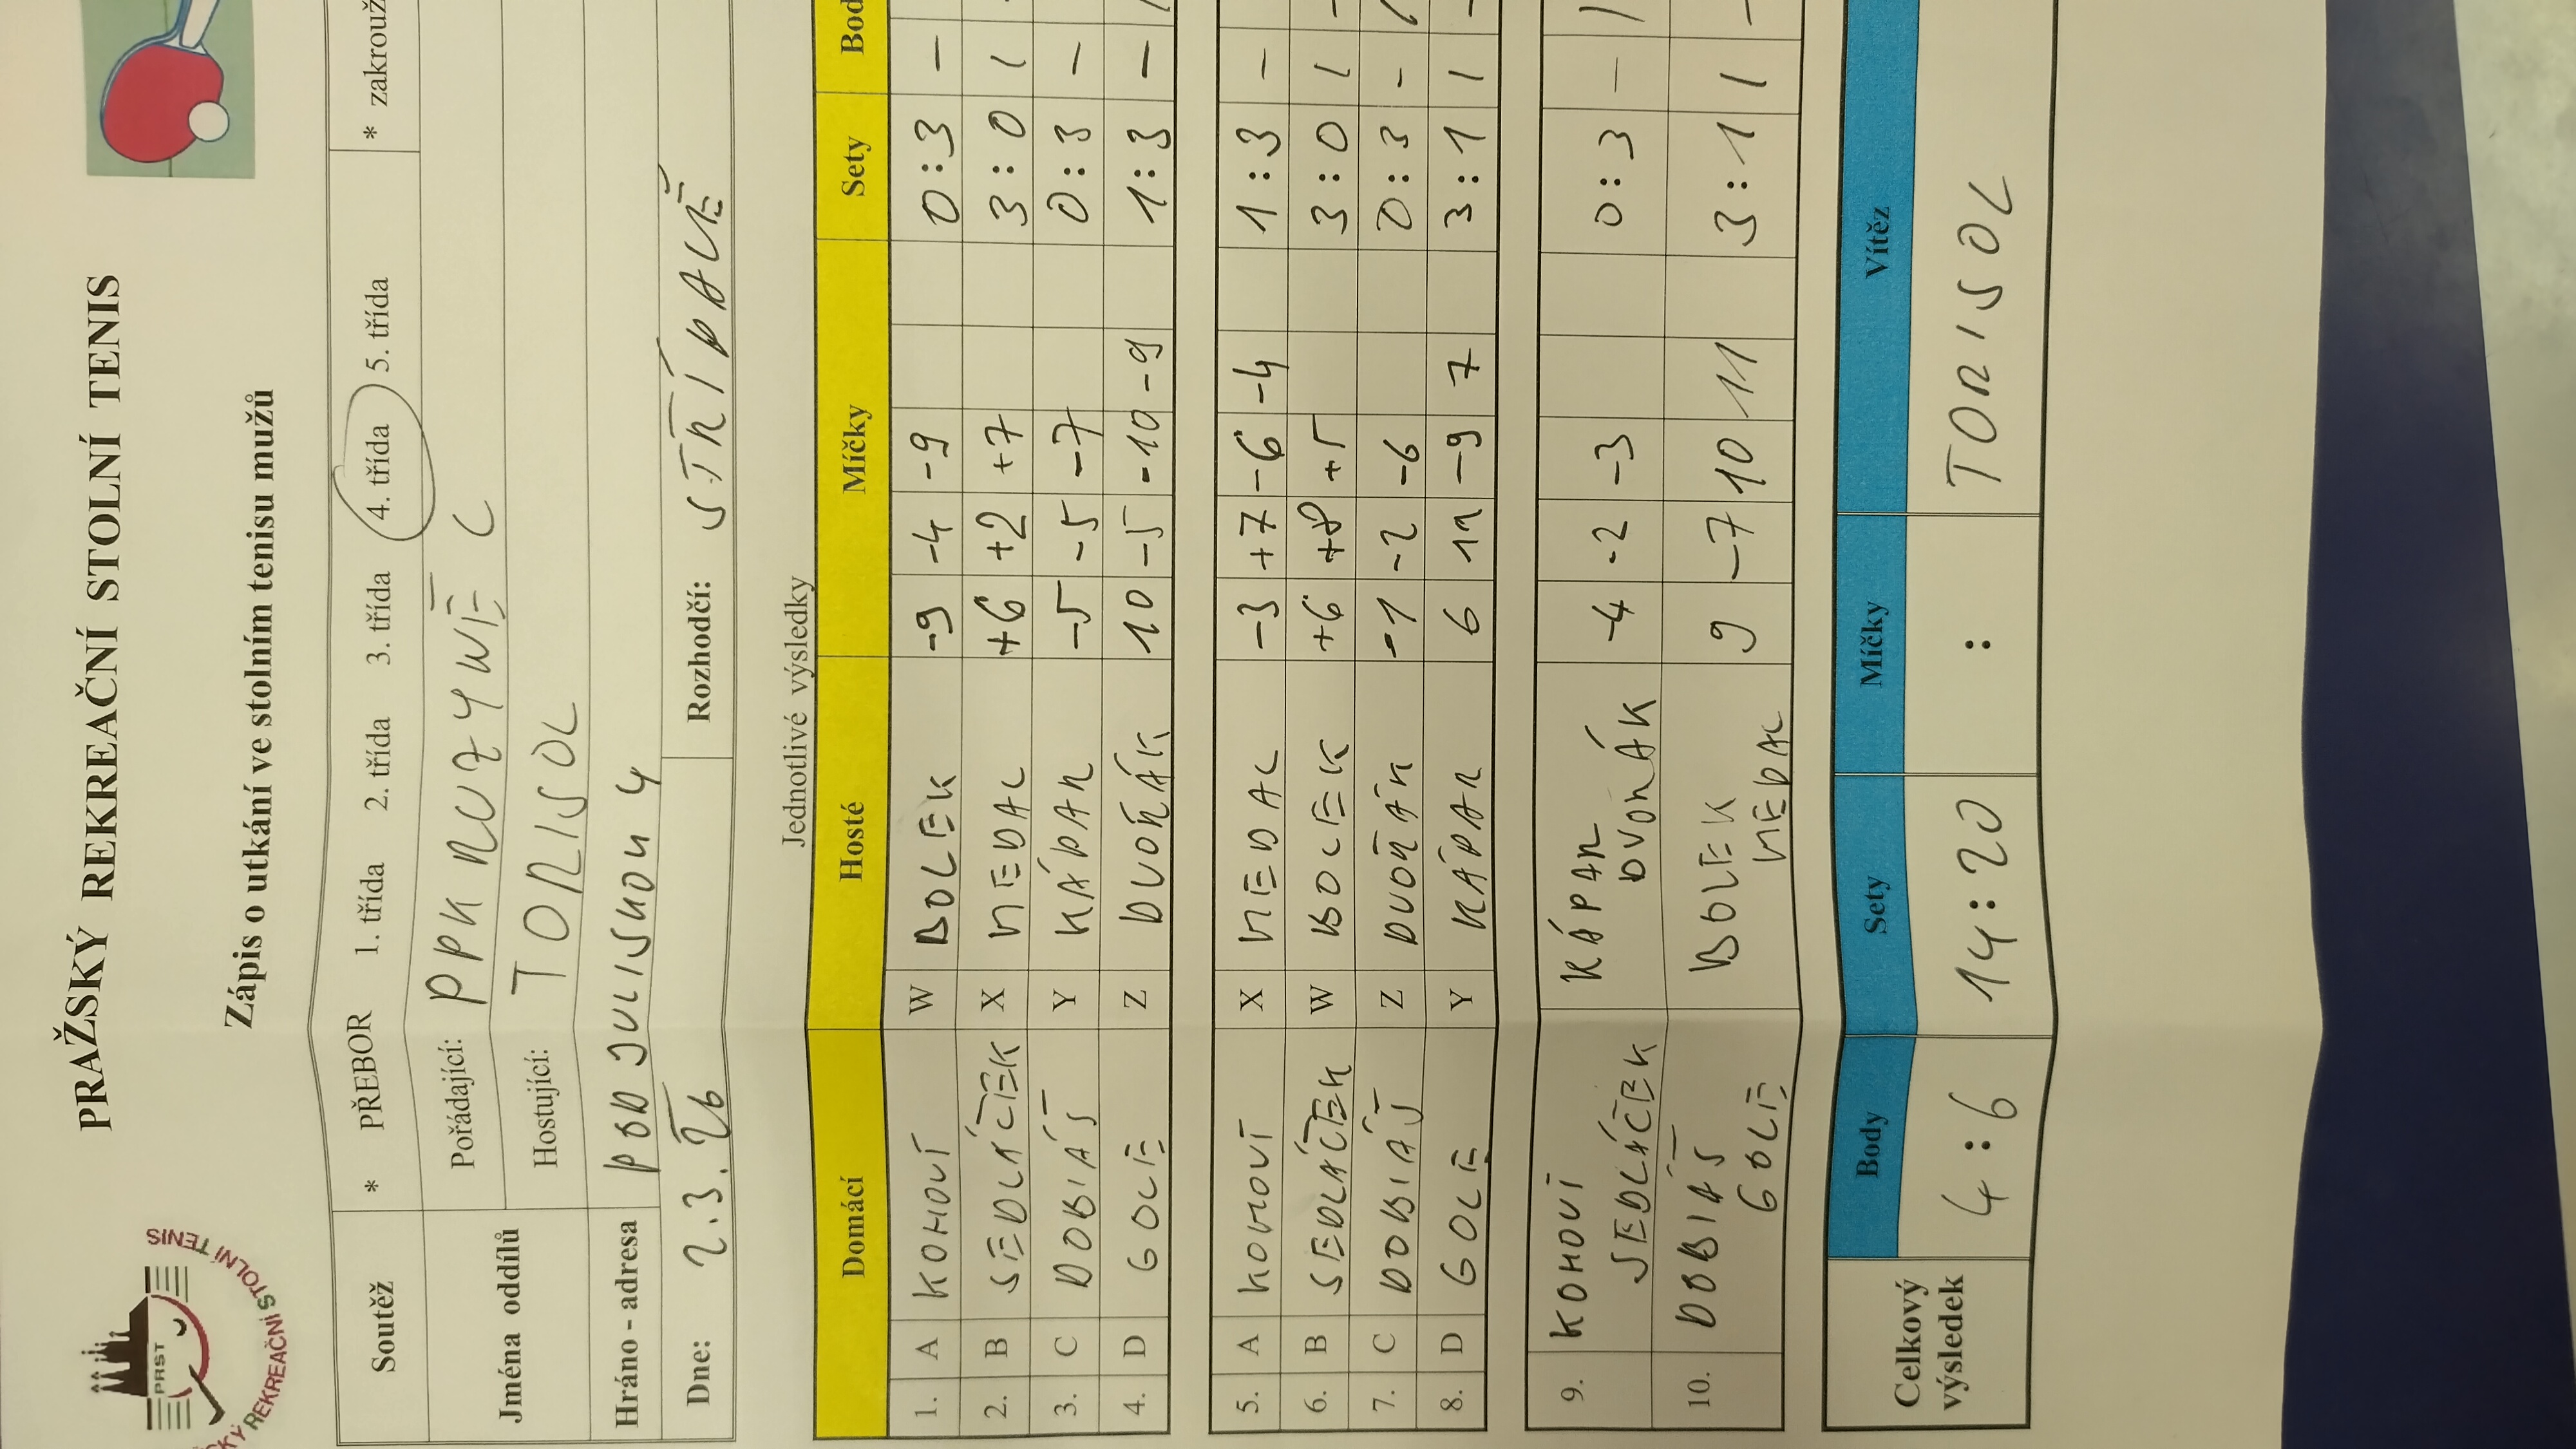 PRAŽSKÝ REKREAČNÍ STOLNÍ TENIS
PRST
REKREAČNÍ STOLNÍ TENIS
Zápis o utkání ve stolním tenisu mužů
Soutěž * PŘEBOR 1. třída 2. třída 3. třída 4. třída 5. třída * zakrouž
Jména oddílů Pořádající: PPK C
Hostující: TORISOL
Hráno - adresa POD JULISKOU 4
Dne: 2.3. Rozhodčí: STŘÍDAVĚ
Jednotlivé výsledky
Domácí Hosté Míčky Sety Bod
1. A KOHOUT W BOLEK -9 -4 -9 0:3 –
2. B SEDLÁČEK X HEDAL +6 +2 +7 3:0 1
3. C DOBIÁŠ Y KÁPAR -5 -5 -7 0:3 –
4. D GOLE Z DVOŘÁK 10 -5 -10 -9 1:3 –
5. A KOHOUT X HEDAL -3 +7 -6 -4 1:3 –
6. B SEDLÁČEK W BOLEK +6 +8 +5 3:0 1
7. C DOBIÁŠ Z DVOŘÁK -1 -2 -6 0:3 -
8. D GOLE Y KÁPAR 6 11 -9 7 3:1 1
9. KOHOUT KÁPAR -4 -2 -3 0:3 –
SEDLÁČEK DVOŘÁK
10. DOBIÁŠ BOLEK 9 -7 10 11 3:1 1
GOLE HEDAL
Celkový výsledek Body Sety Míčky Vítěz
4:6 14:20 : TORISOL